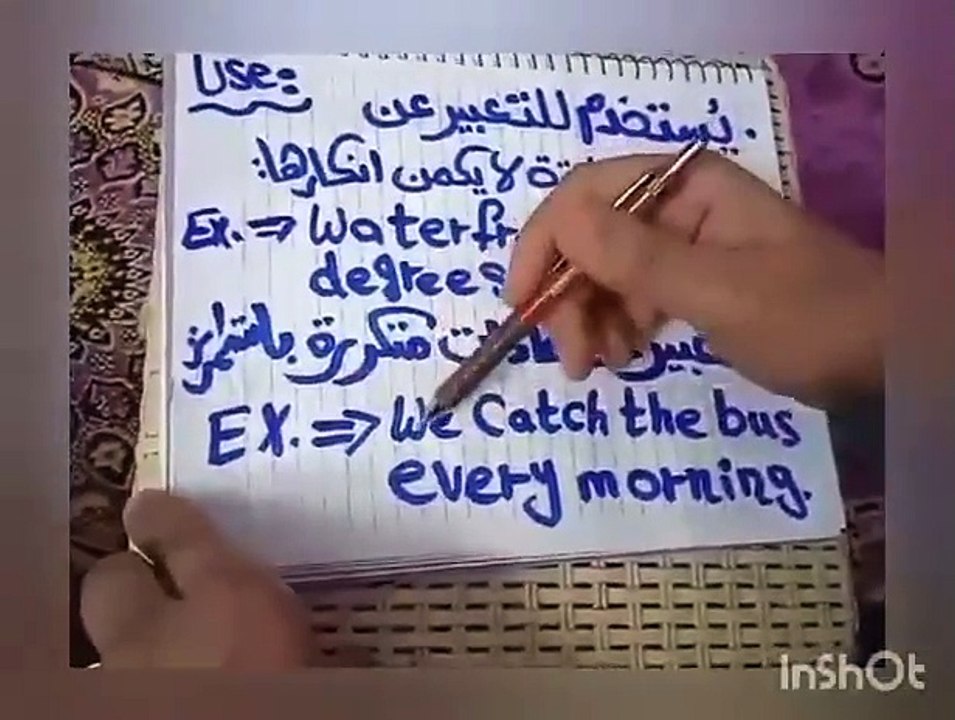 Use:
. يُستخدم للتعبير عن
لا يكمن انكارها:
Ex. ⇒ Water
degrees
متكررة باستمرار
EX. ⇒ We Catch the bus
every morning.
InShOt